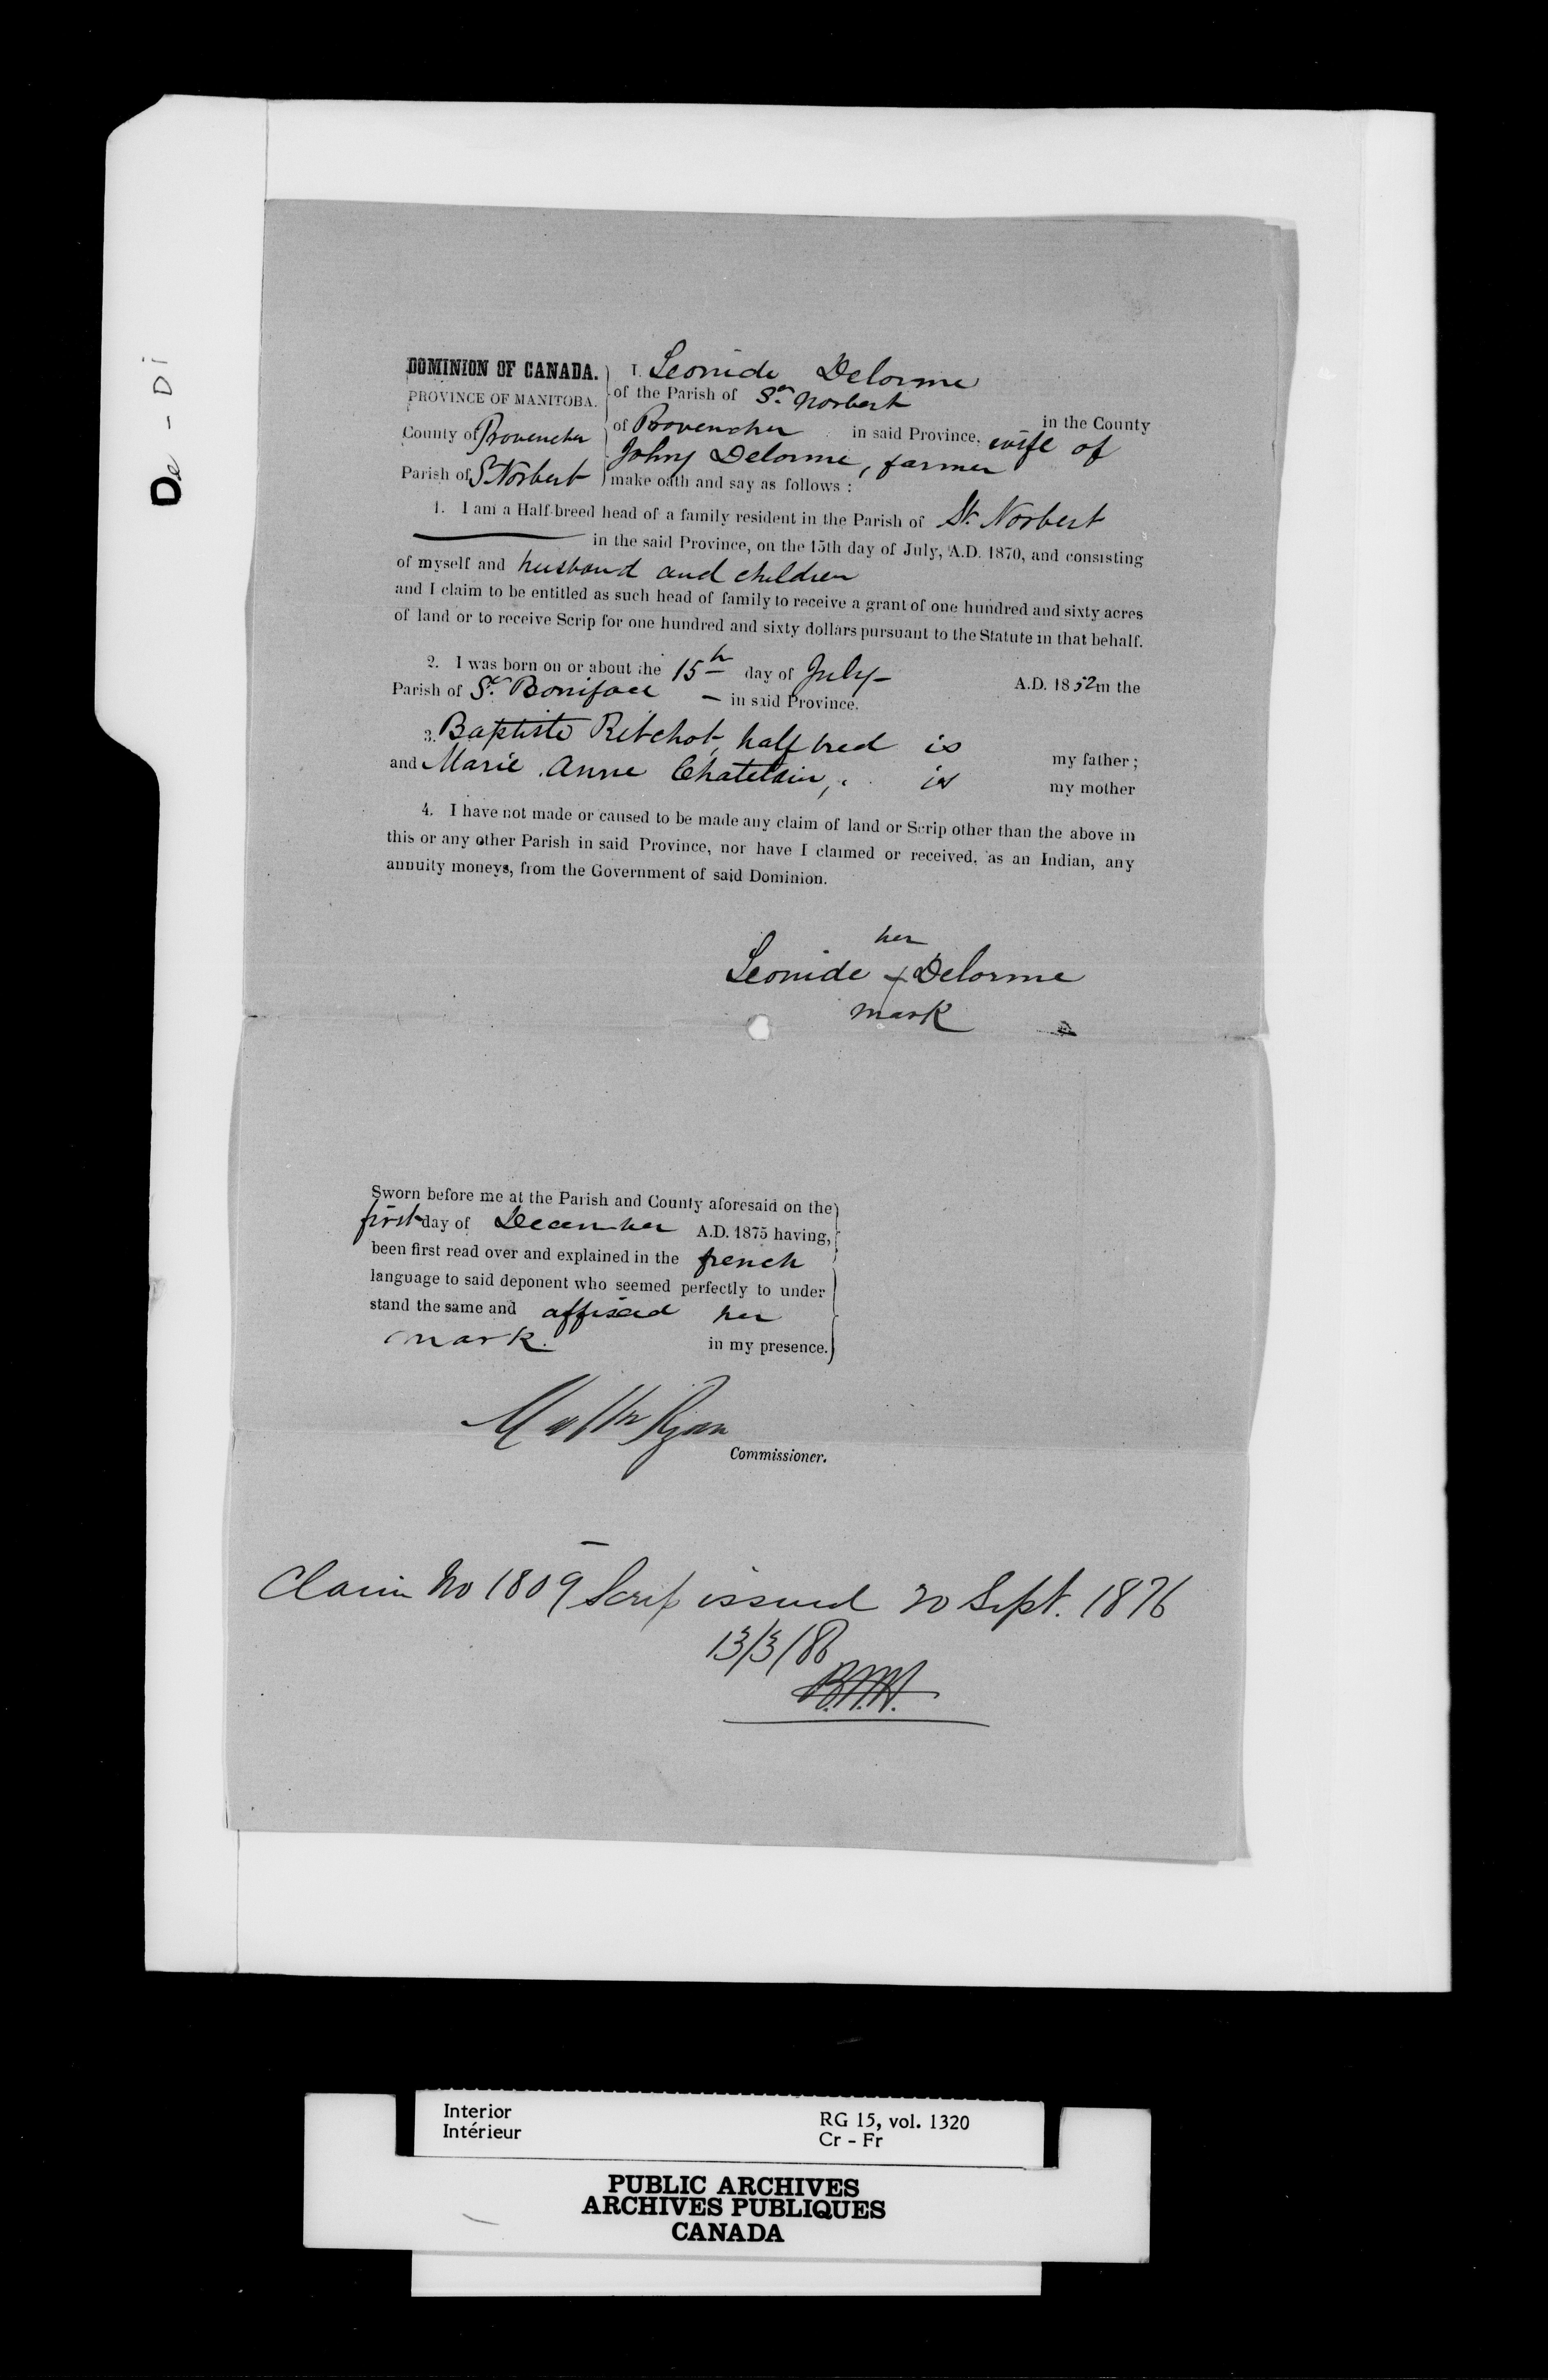 De - Di
DOMINION OF CANADA.
PROVINCE OF MANITOBA.
County of Provencher
Parish of St Norbert
I. Leonide Delorme
of the Parish of St. Norbert in the County
of Provencher in said Province, wife of
Johny Delorme, farmer
make oath and say as follows :
1. I am a Half-breed head of a family resident in the Parish of St. Norbert
in the said Province, on the 15th day of July, A.D. 1870, and consisting
of myself and husband and children
and I claim to be entitled as such head of family to receive a grant of one hundred and sixty acres
of land or to receive Scrip for one hundred and sixty dollars pursuant to the Statute in that behalf.
2. I was born on or about the 15th day of July - A.D. 1852 in the
Parish of St. Boniface - in said Province.
3. Baptiste Ritchot, half bred is my father ;
and Marie Anne Chatelain, is my mother
4. I have not made or caused to be made any claim of land or Scrip other than the above in
this or any other Parish in said Province, nor have I claimed or received, as an Indian, any
annuity moneys, from the Government of said Dominion.
her
Leonide x Delorme
mark
Sworn before me at the Parish and County aforesaid on the
first day of December A.D. 1875 having,
been first read over and explained in the french
language to said deponent who seemed perfectly to under
stand the same and affixed her
mark. in my presence.
Matth Ryan
Commissioner.
Claim No 1809 Scrip issued 20 Sept. 1876
13/3/86
Interior
Intérieur
RG 15, vol. 1320
Cr - Fr
PUBLIC ARCHIVES
ARCHIVES PUBLIQUES
CANADA